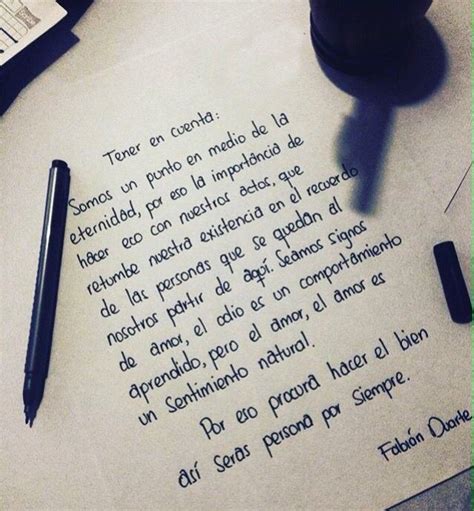 Tener en cuenta:
Somos un punto en medio de la
eternidad, por eso la importancia de
hacer eco con nuestros actos, que
retumbe nuestra existencia en el recuerdo
de las personas que se quedan al
nosotros partir de aquí. Seamos signos
de amor, el odio es un comportamiento
aprendido, pero el amor, el amor es
un sentimiento natural.
Por eso procura hacer el bien
así seras persona por siempre.
Fabián Duarte